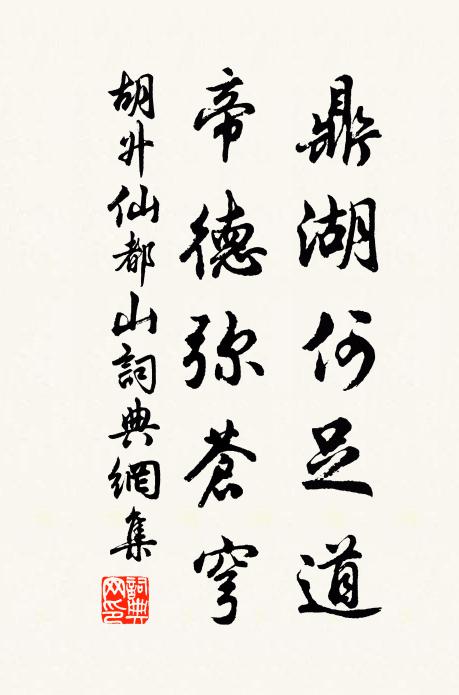 鼎湖何足道
帝德弥蒼穹
胡升仙都山詞典網集
詞典網印